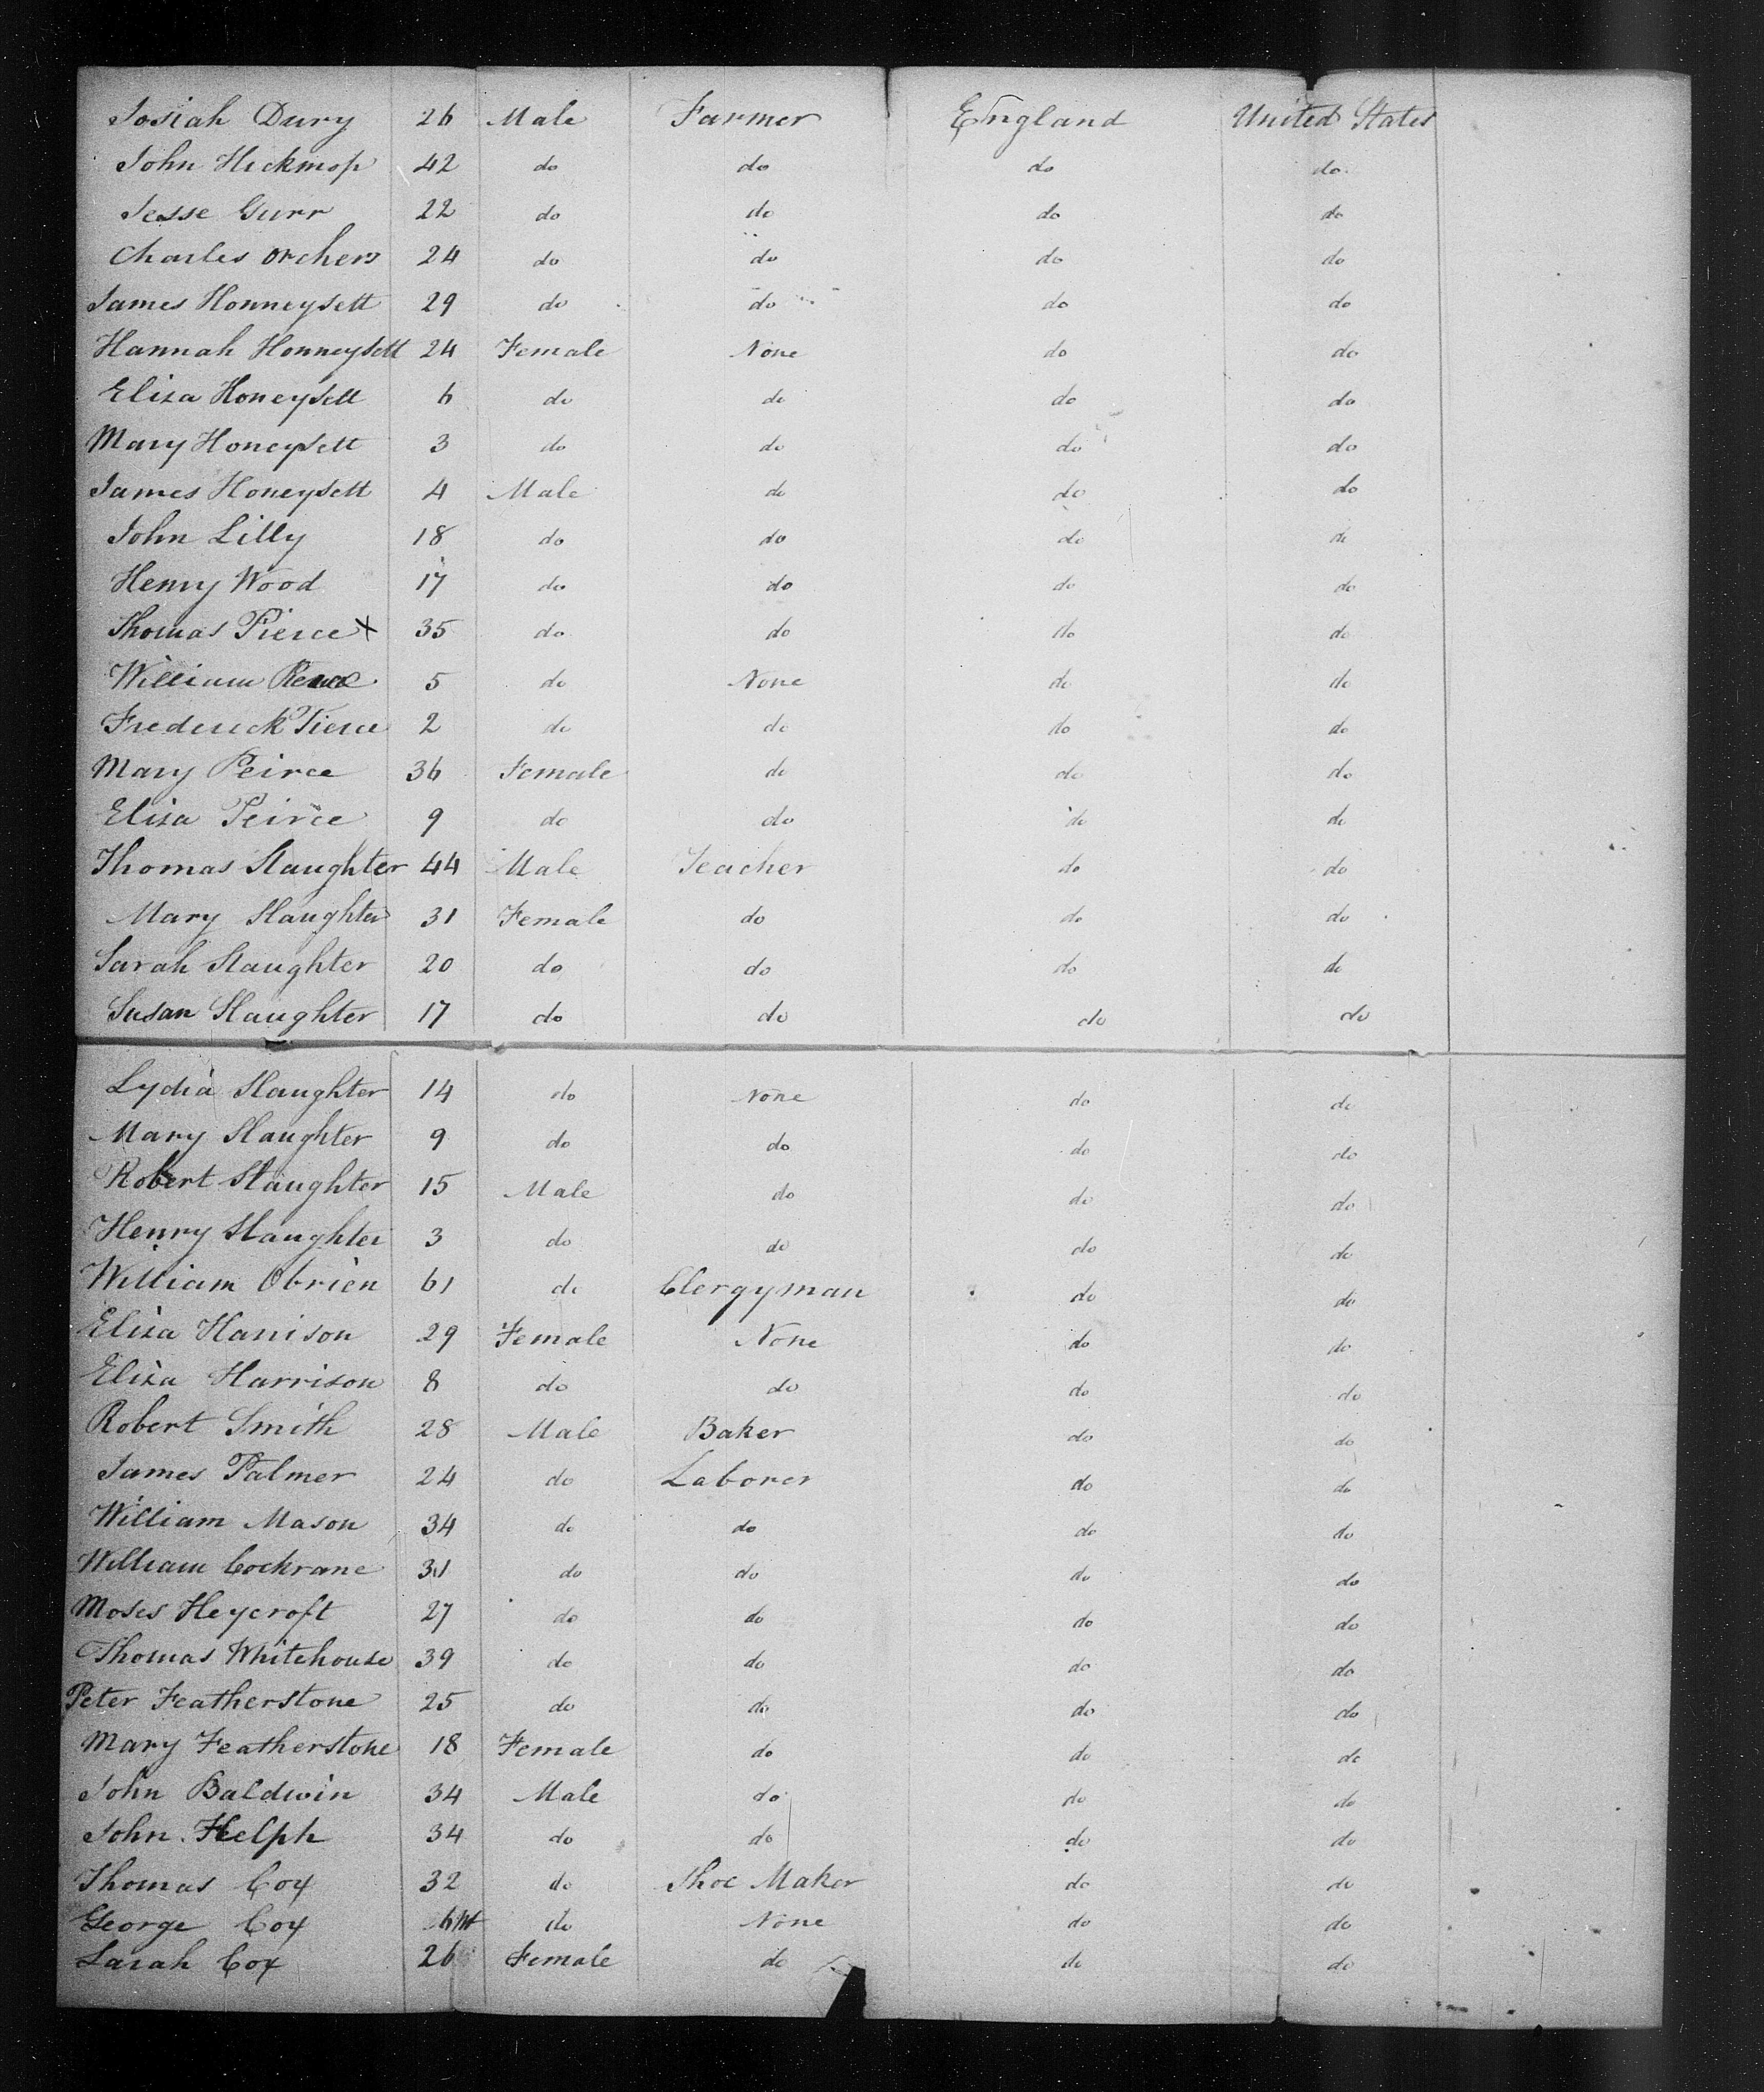 Josiah Dury 26 Male Farmer England United States
John Hickmop 42 do do do do
Jesse Gurr 22 do do do do
Charles Orchers 24 do do do do
James Honneysett 29 do do do do
Hannah Honneysett 24 Female None do do
Eliza Honeysett 6 do do do do
Mary Honeysett 3 do do do do
James Honeysett 4 Male do do do
John Lilly 18 do do do do
Henry Wood 17 do do do do
Thomas Pierce x 35 do do do do
William 5 do None do do
Frederick Pierce 2 do do do do
Mary Peirce 36 Female do do do
Eliza Peirce 9 do do do do
Thomas Slaughter 44 Male Teacher do do
Mary Slaughter 31 Female do do do
Sarah Slaughter 20 do do do do
Susan Slaughter 17 do do do do
Lydia Slaughter 14 do None do do
Mary Slaughter 9 do do do do
Robert Slaughter 15 Male do do do
Henry Slaughter 3 do do do do
William Obrien 61 do Clergyman do do
Eliza Harrison 29 Female None do do
Eliza Harrison 8 do do do do
Robert Smith 28 Male Baker do do
James Palmer 24 do Laborer do do
William Mason 34 do do do do
William Cockrane do do do do
Moses Heycroft 27 do do do do
Thomas Whitehouse 39 do do do do
Peter Featherstone 25 do do do do
Mary Featherstone 18 Female do do do
John Baldwin 34 Male do do do
John Helph 34 do do do do
Thomas Cox 32 do Shoe Maker do do
George Cox 6 Mt do None do do
Sarah Cox 26 Female do do do